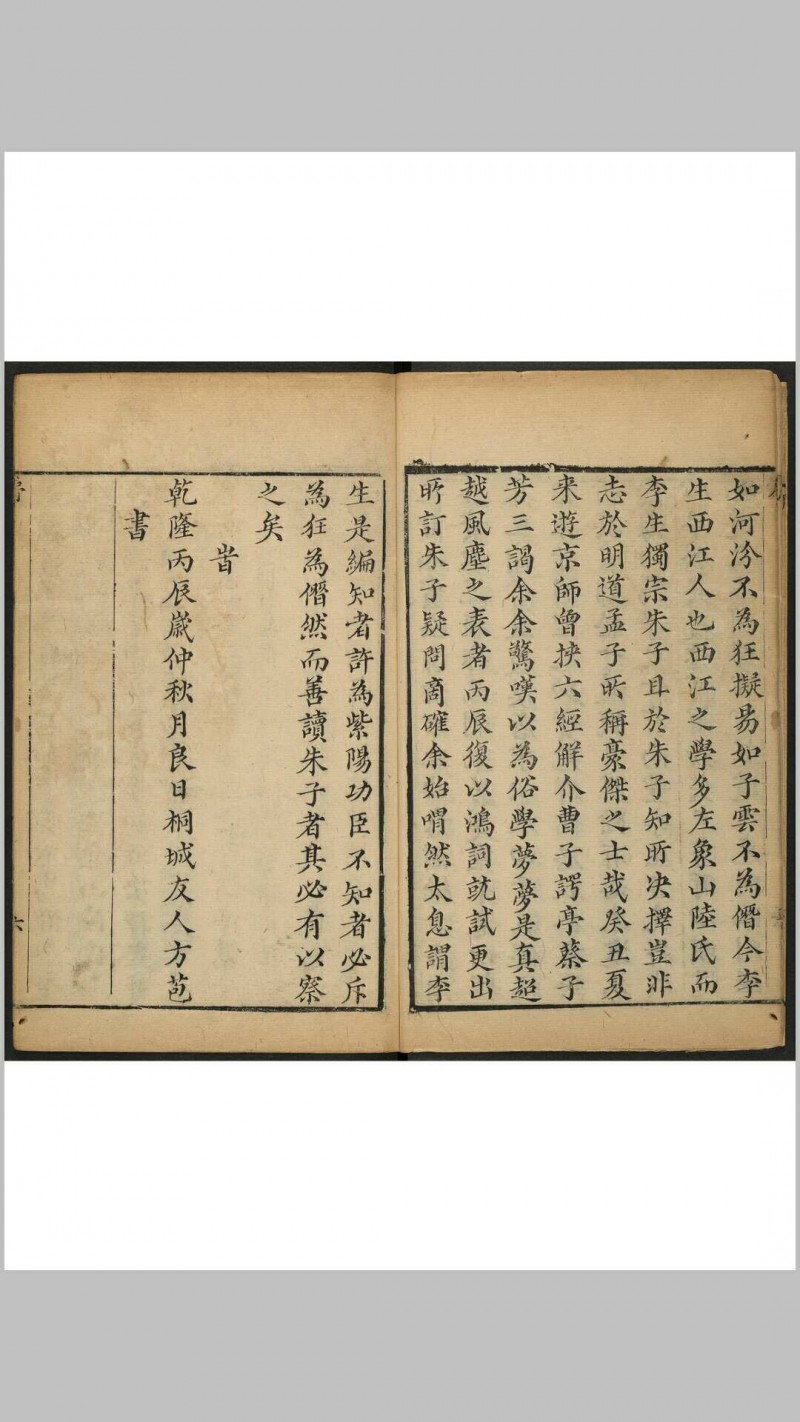 如河汾不為狂擬易如子雲不為僭今李
生西江人也西江之學多左象山陸氏而
李生獨宗朱子且於朱子知所决擇豈非
志於明道孟子所稱豪傑之士哉癸丑夏
来遊京師曾挾六經解介曹子諤亭蔡子
芳三謁余余驚嘆以為俗學夢夢是真超
越風塵之表者丙辰復以鴻詞就試更出
所訂朱子疑問商確余始喟然太息謂李
生是編知者許為紫陽功臣不知者必斥
為狂為僭然而善讀朱子者其必有以察
之矣
旹
乾隆丙辰歲仲秋月良日桐城友人方苞
書
六